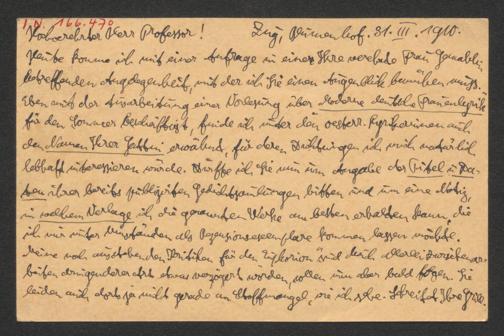 I.N. 166.470
Hochverehrter Herr Professor! Zug, Blumenhof. 31. III. 1910.
Heute komme ich mit einer Anfrage in einer Ihre verehrte Frau Gemahlin
betreffenden Angelegenheit, mit der ich Sie einen Augenblick bemühen muß.
Eben mit der Ausarbeitung einer Vorlesung über moderne deutsche Frauenlyrik
für den Sommer beschäftigt, finde ich unter den oesterr. Lyrikerinnen auch
den Namen Ihrer Gattin erwähnt, für deren Dichtungen ich mich natürlich
lebhaft interessieren würde. Dürfte ich Sie nun um Angabe der Titel u. Da-
ten ihrer bereits publizierten Gedichtsammlungen bitten und um eine Notiz,
in welchem Verlage ich die genannten Werke am besten erhalten kann, die
ich mir unter Umständen als Rezensionsexemplare kommen lassen möchte.
Meine noch ausstehenden Kritiken für den Euphorion sind durch allerlei
dringenderer Art etwas verzögert worden, sollen nun aber bald folgen. Sie
leiden auch dort ja nicht gerade an Stoffmangel, wie ich sehe.